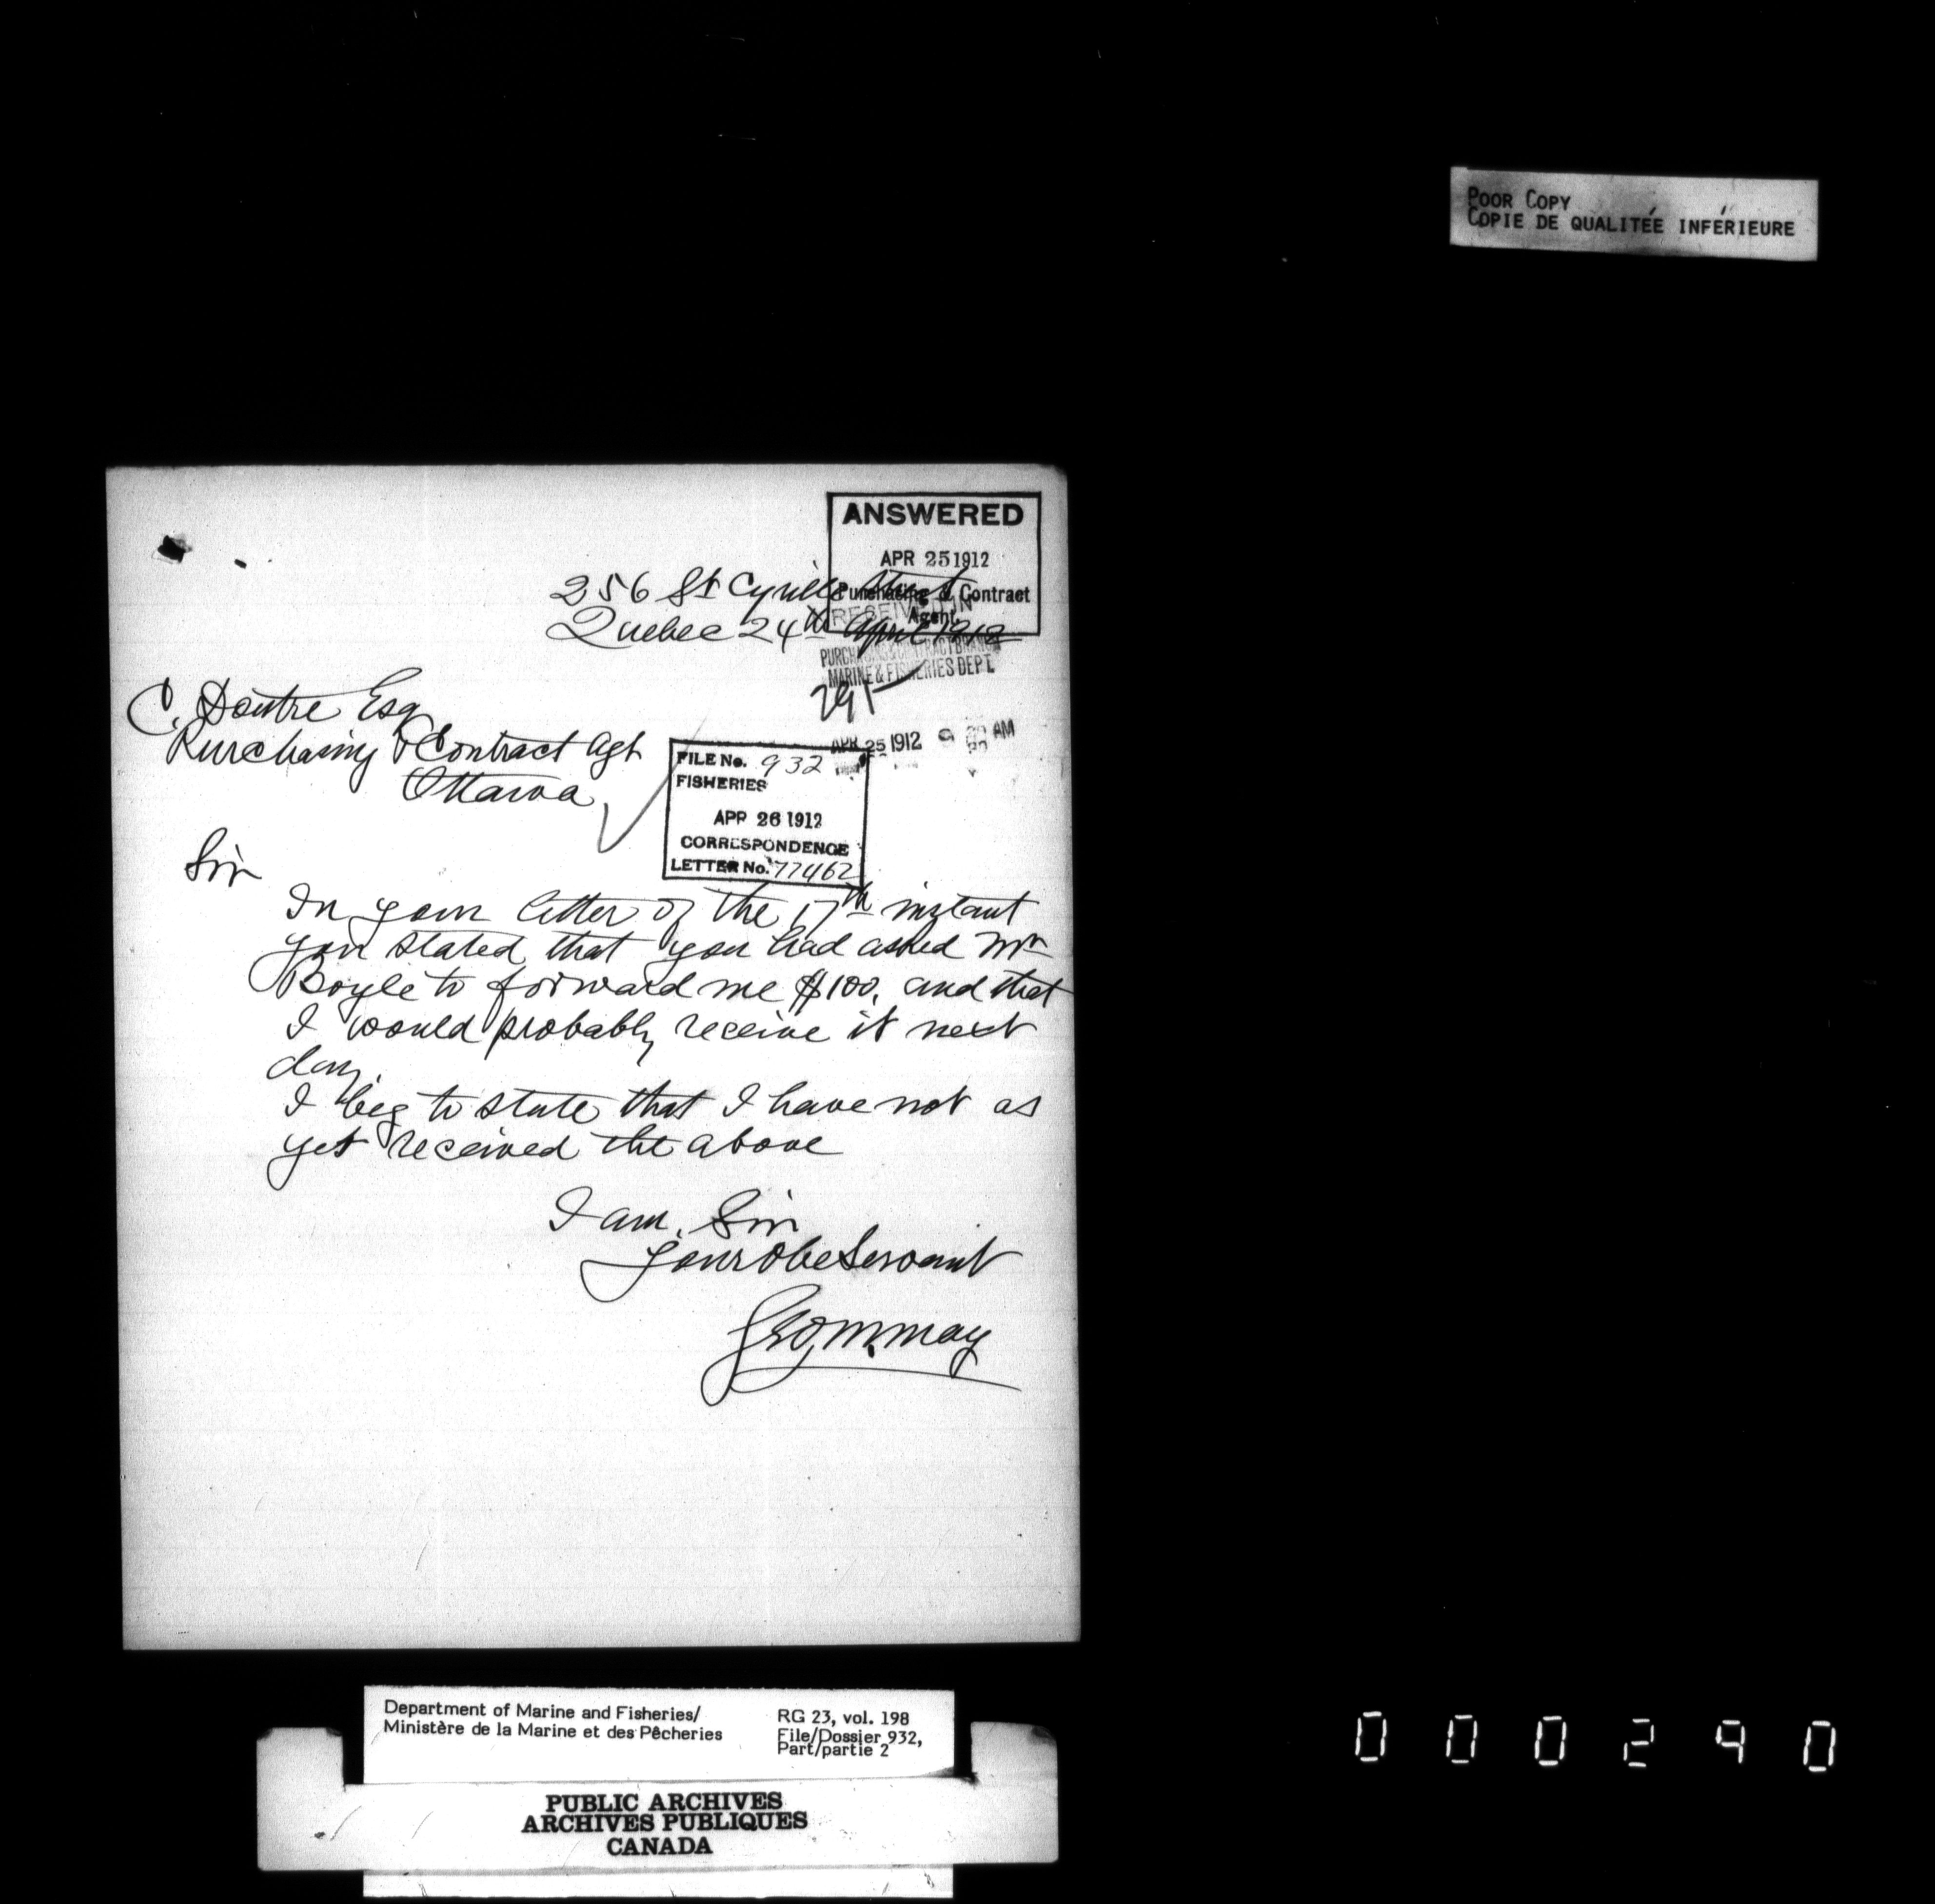 POOR COPY
COPIE DE QUALITÉE INFÉRIEURE
ANSWERED
APR 25 1912
Purchasing & Contract
Agent.
256 St Cyrille Street
Quebec 24th April 1912
RECEIVED IN
PURCHASING & CONTRACT BRANCH
MARINE & FISHERIES DEPT.
291
APR 25 1912 9 AM
C. Doutre Esq
Purchasing & Contract Agt
Ottawa
FILE No. 932
FISHERIES
APR 26 1912
CORRESPONDENCE
LETTER No. 77462
Sir
In your letter of the 17th instant
you stated that you had asked Mr
Boyle to forward me $100. and that
I would probably receive it next
day.
I beg to state that I have not as
yet received the above
I am, Sir
Your Obe Servant
Geo. M. May
Department of Marine and Fisheries/
Ministère de la Marine et des Pêcheries
RG 23, vol. 198
File/Dossier 932,
Part/partie 2
PUBLIC ARCHIVES
ARCHIVES PUBLIQUES
CANADA
000290